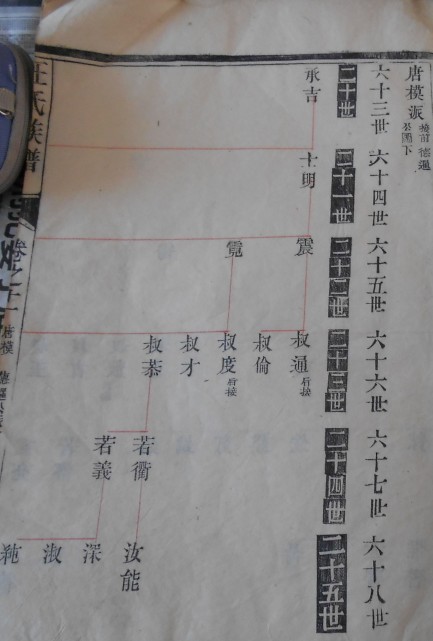 唐模派
接前德遇
公關下
六十三世
六十四世
六十五世
六十六世
六十七世
六十八世
二十世
二十一世
二十二世
二十三世
二十四世
二十五世
承吉
士明
震
霓
叔通 后接
叔倫
叔度 后接
叔才
叔恭
若衢
若義
汝能
深
淑
汪氏族譜
卷之二
唐模